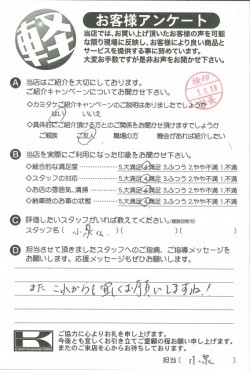 軽
お客様アンケート
当店では、お買い上げ頂いたお客様の声を可能
な限り現場に反映し、お客様により良い商品と
サービスを提供する事に努めています。
大変お手数ですが是非お声をお聞かせ下さい。
A 当店はご紹介を大切にしております。
ご紹介キャンペーンについてお聞かせ下さい。
・カミタケご紹介キャンペーンのご説明はありましたでしょうか
はい いいえ
・具体的にご紹介頂ける方とのご関係をお聞かせ頂けますでしょうか
ご親族 ご友人 職場の方 機会があれば紹介したい
B 当店を実際にご利用になった印象をお聞かせ下さい。
◇総合的な満足度 5.大満足 4.満足 3.ふつう 2.やや不満 1.不満
◇スタッフの対応 5.大満足 4.満足 3.ふつう 2.やや不満 1.不満
◇お店の雰囲気、清掃 5.大満足 4.満足 3.ふつう 2.やや不満 1.不満
◇納車時のお車の状態 5.大満足 4.満足 3.ふつう 2.やや不満 1.不満
C 評価したいスタッフがいれば教えてください。(複数回答可)
スタッフ名( 小泉くん )
D 担当させて頂きましたスタッフへのご指摘、ご指導メッセージを
お願いします。応援メッセージもぜひお願いします。
また これからも 宜しくお願いしますね!
K
ご協力に心よりお礼を申し上げます。
今後とも宜しくお引き立てご愛顧の程お願い申し上げます。
またのご来店を心からお待ちしております。
担当( 小泉 )